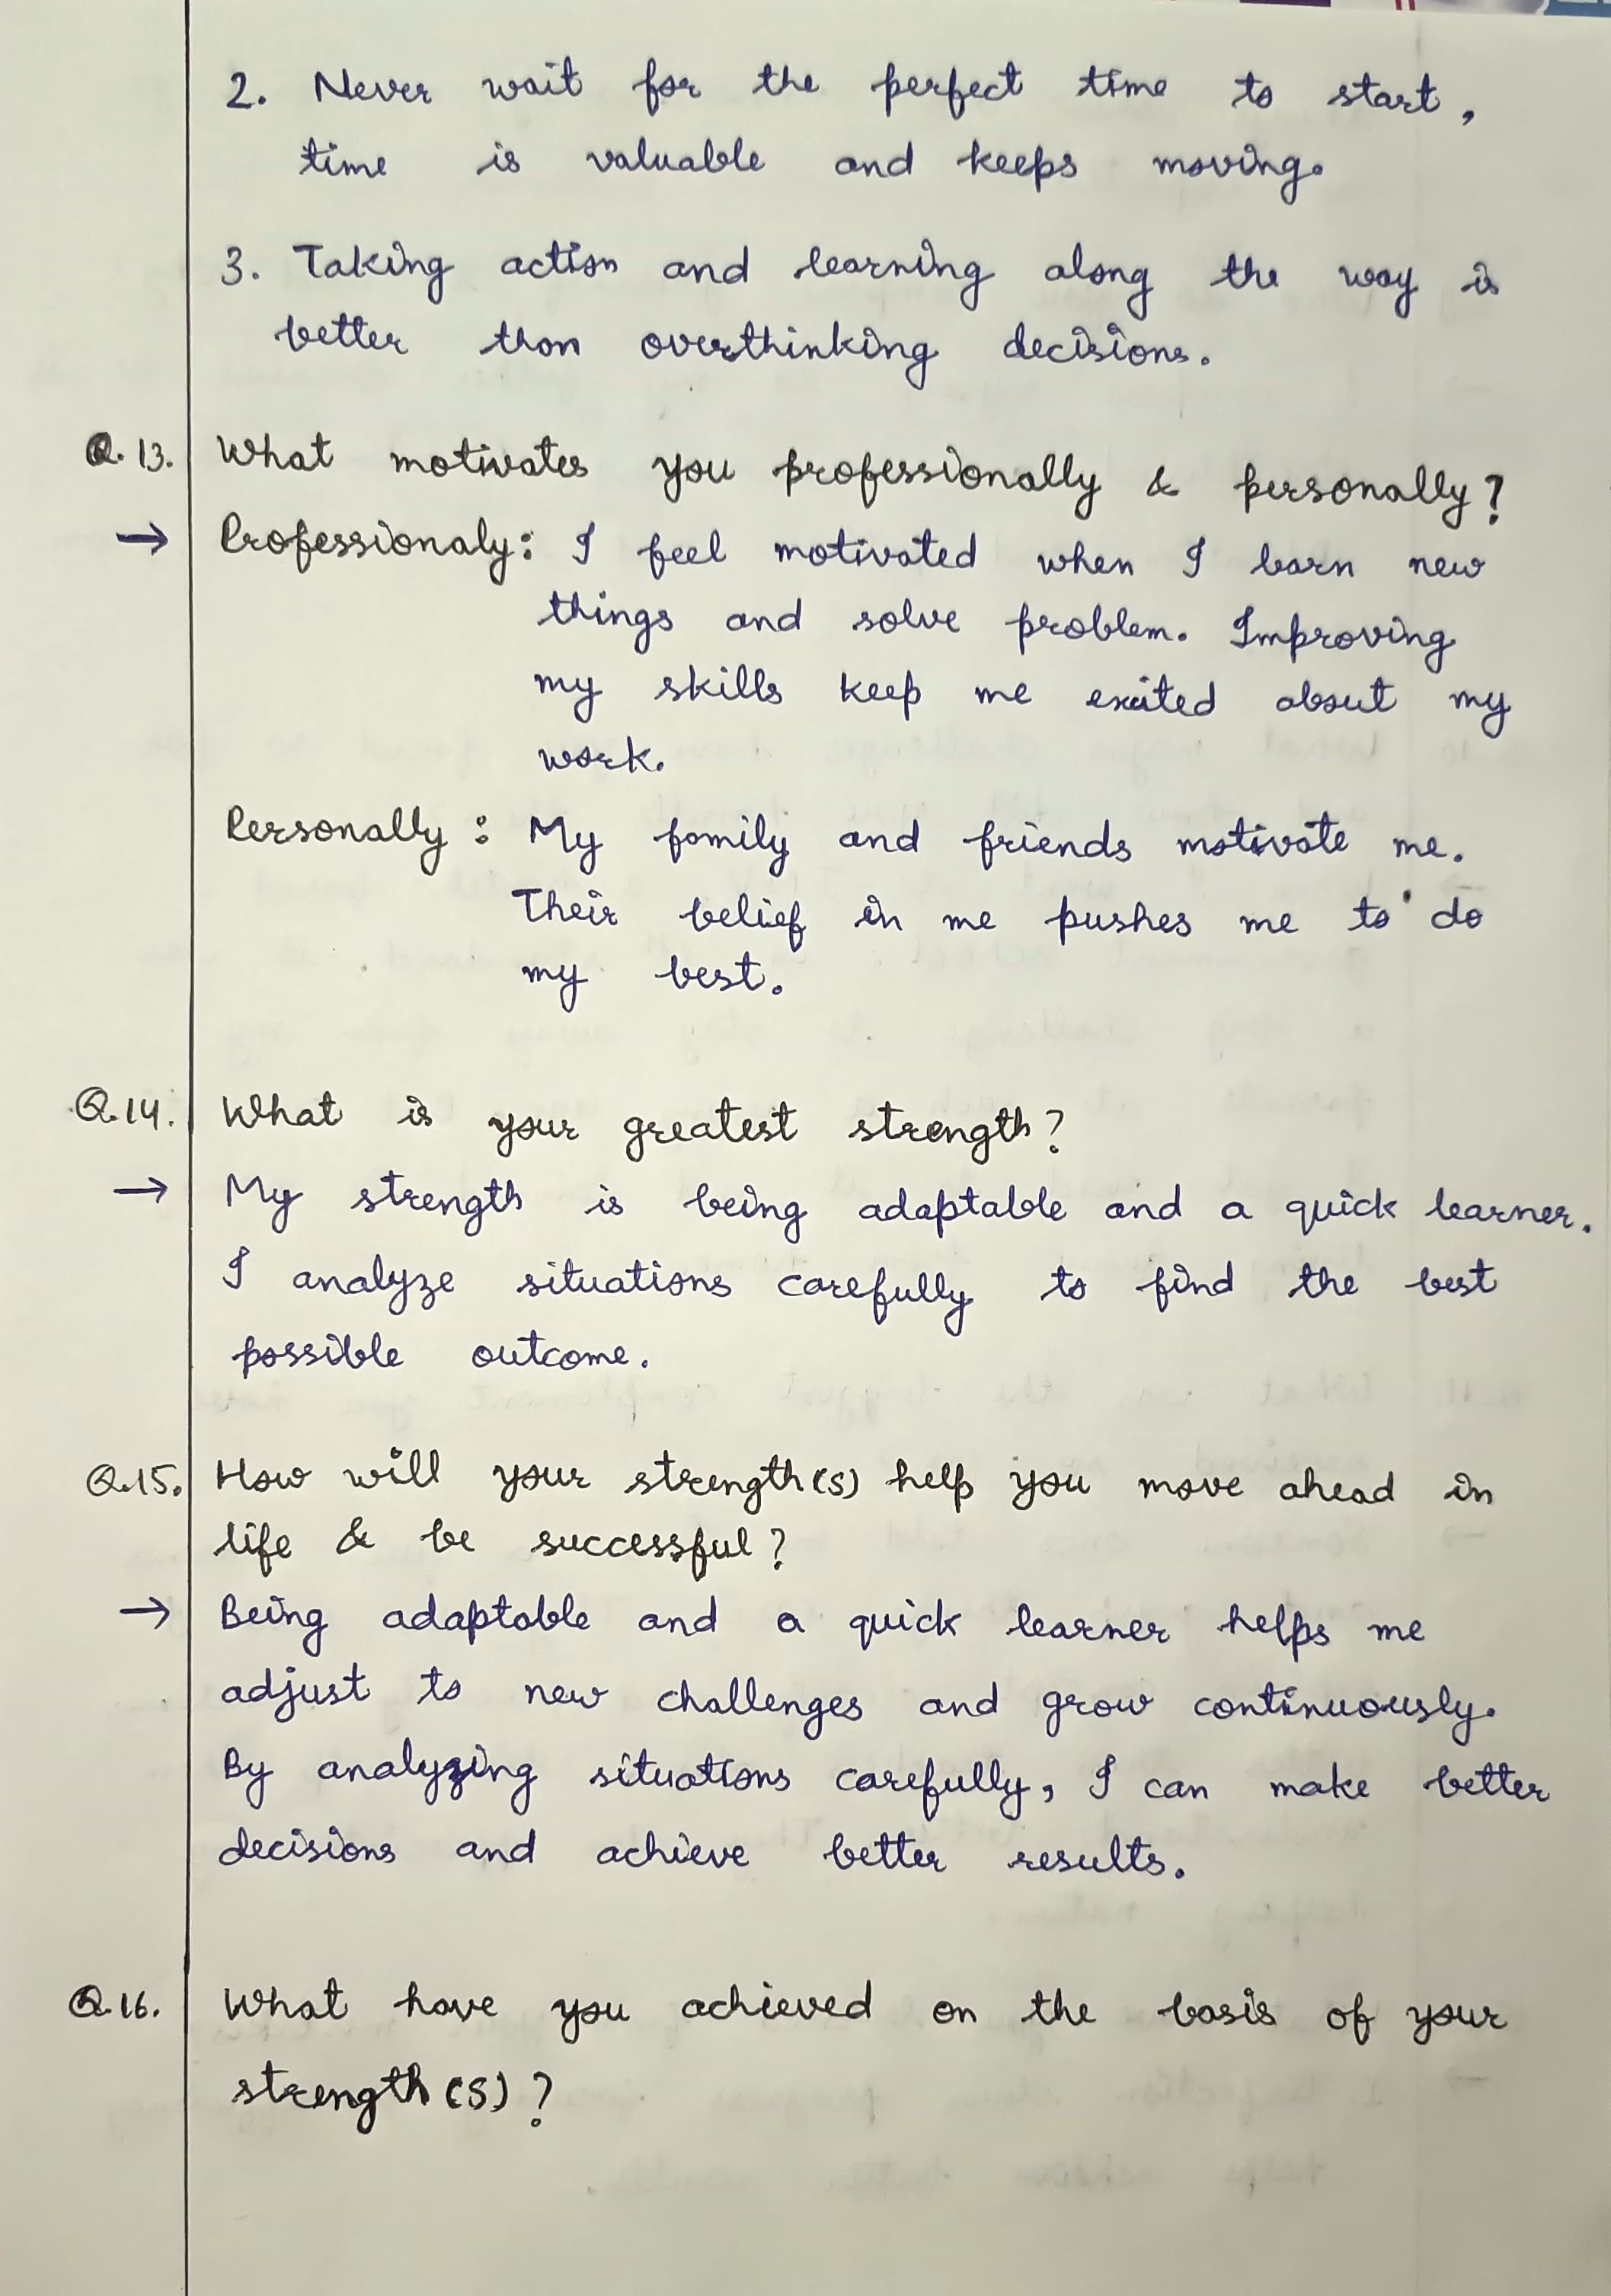 2. Never wait for the perfect time to start,
time is valuable and keeps moving.
3. Taking action and learning along the way is
better than overthinking decisions.
Q.13. What motivates you professionally & personally?
→ Professionaly: I feel motivated when I learn new
things and solve problem. Improving
my skills keep me excited about my
work.
Personally: My family and friends motivate me.
Their belief in me pushes me to do
my best.
Q.14. What is your greatest strength?
→ My strength is being adaptable and a quick learner.
I analyze situations carefully to find the best
possible outcome.
Q.15. How will your strength(s) help you move ahead in
life & be successful?
→ Being adaptable and a quick learner helps me
adjust to new challenges and grow continuously.
By analyzing situations carefully, I can make better
decisions and achieve better results.
Q.16. What have you achieved on the basis of your
strength(s)?